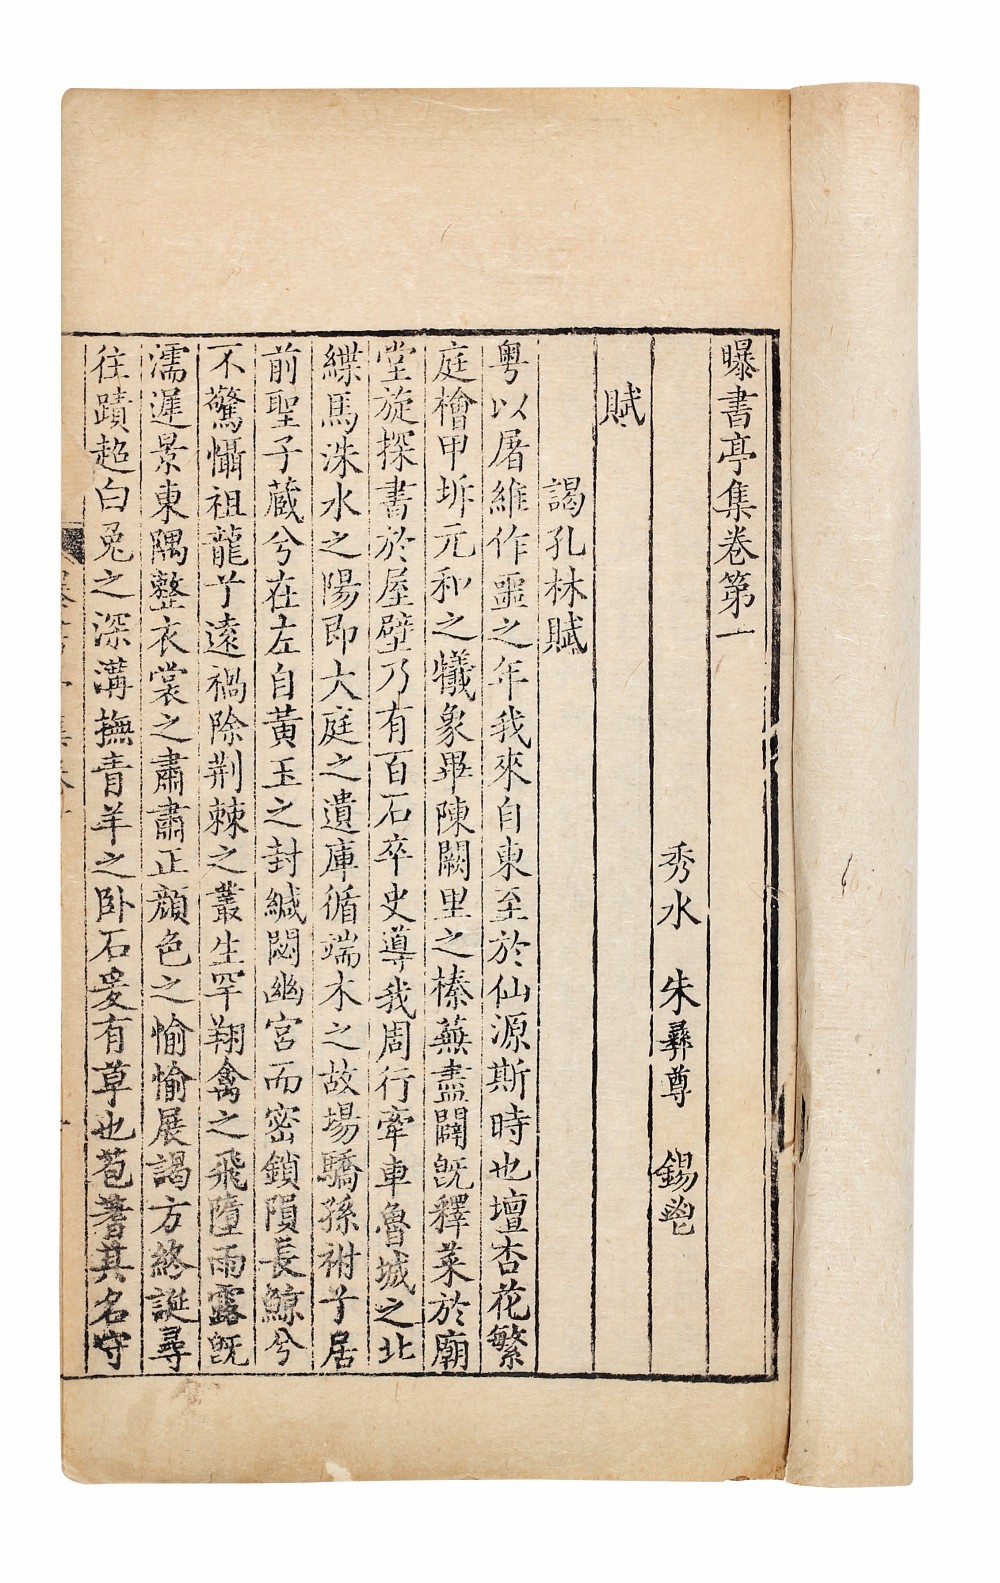 曝書亭集卷第一
秀水 朱彝尊 錫鬯
賦
謁孔林賦
粵以屠維作噩之年我來自東至於仙源斯時也壇杏花繁
庭檜甲坼元和之犧象畢陳闕里之榛蕪盡闢旣釋菜於廟
堂旋探書於屋壁乃有百石卒史導我周行牽車魯城之北
緤馬洙水之陽即大庭之遺庫循端木之故場驕孫祔子居
前聖子藏兮在左自黃玉之封緘閟幽宮而密鎖隕長鯨兮
不驚懾祖龍兮遠禍除荆棘之叢生罕翔禽之飛墮雨露旣
濡遲景東隅整衣裳之肅肅正顏色之愉愉展謁方終誕尋
往蹟超白兔之深溝撫青羊之卧石爰有草也苞蓍其名守